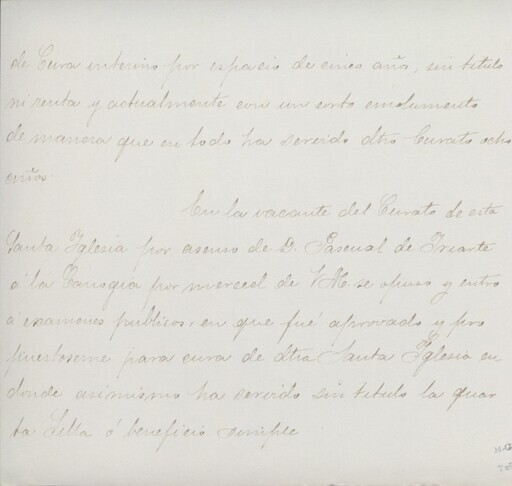 de Cura interino por espacio de cinco año, sin titulo
ni renta y actualmente con un corto emolumento
de manera que en todo ha servido dho Curato ocho
años
En la vacante del Curato de esta
Santa Iglesia por asenso de D. Pascual de Iriarte
á la Canogia por merced de V.M. se opuso y entro
á examenes publicos, en que fué aprovado y pro
puestoseme para cura de dha Santa Iglesia en
donde asimismo ha servido sin titulo la quar
ta Silla ó beneficio simple